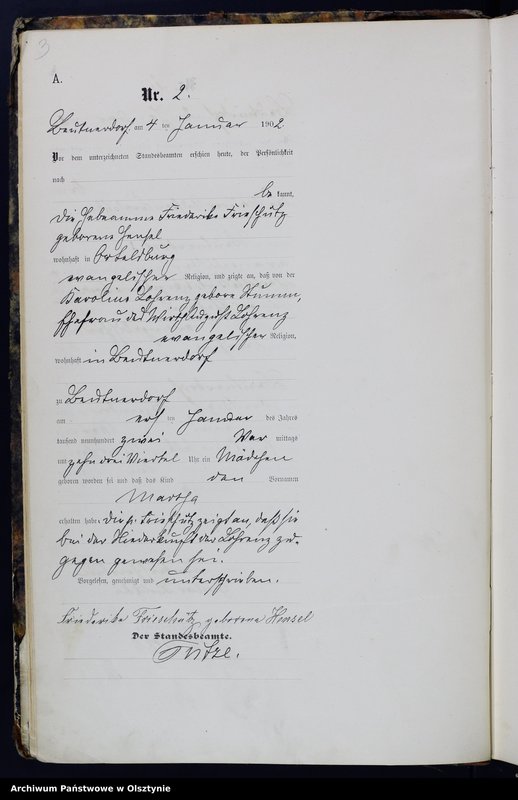 3
A.
Nr. 2.
Beutnerdorf am 4 ten Januar 1902
Vor dem unterzeichneten Standesbeamten erschien heute, der Persönlichkeit
nach
be kannt,
die Hebeamme Friederike Frieschutz
geborene Hensel
wohnhaft in Ortelsburg
evangelischer Religion, und zeigte an, daß von der
Karoline Lohrenz geborene Stumm,
Ehefrau des Wirth August Lohrenz
evangelischer Religion,
wohnhaft in Beutnerdorf
zu Beutnerdorf
am ten Januar des Jahres
tausend neunhundert zwei Vor mittags
um zehn drei Viertel Uhr ein Mädchen
geboren worden sei und daß das Kind den Vornamen
Martha
erhalten habe. Die p. Frieschutz zeigt an, daß sie
bei der Niederkunft der Lohrenz zu-
gegen gewesen sei.
Vorgelesen, genehmigt und unterschrieben.
Friederike Frieschutz geborene Hensel
Der Standesbeamte.
Archiwum Państwowe w Olsztynie